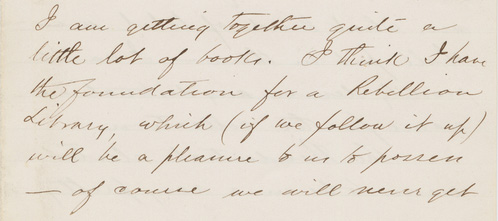 I am getting together quite a
little lot of books. I think I have
the foundation for a Rebellion
Library, which (if we follow it up)
will be a pleasure to us to possess
— of course we will never get